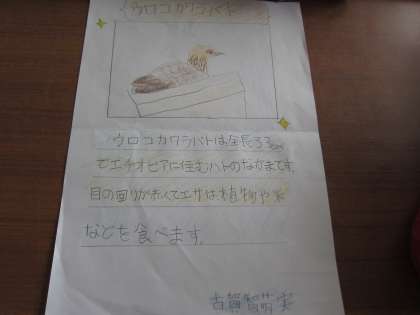 ウロコカワラバト
ウロコカワラバトは全長33cm
でエチオピアに住むハトのなかまです。
目の回りが赤くてエサは植物や実
などを食べます。
古賀智萌実